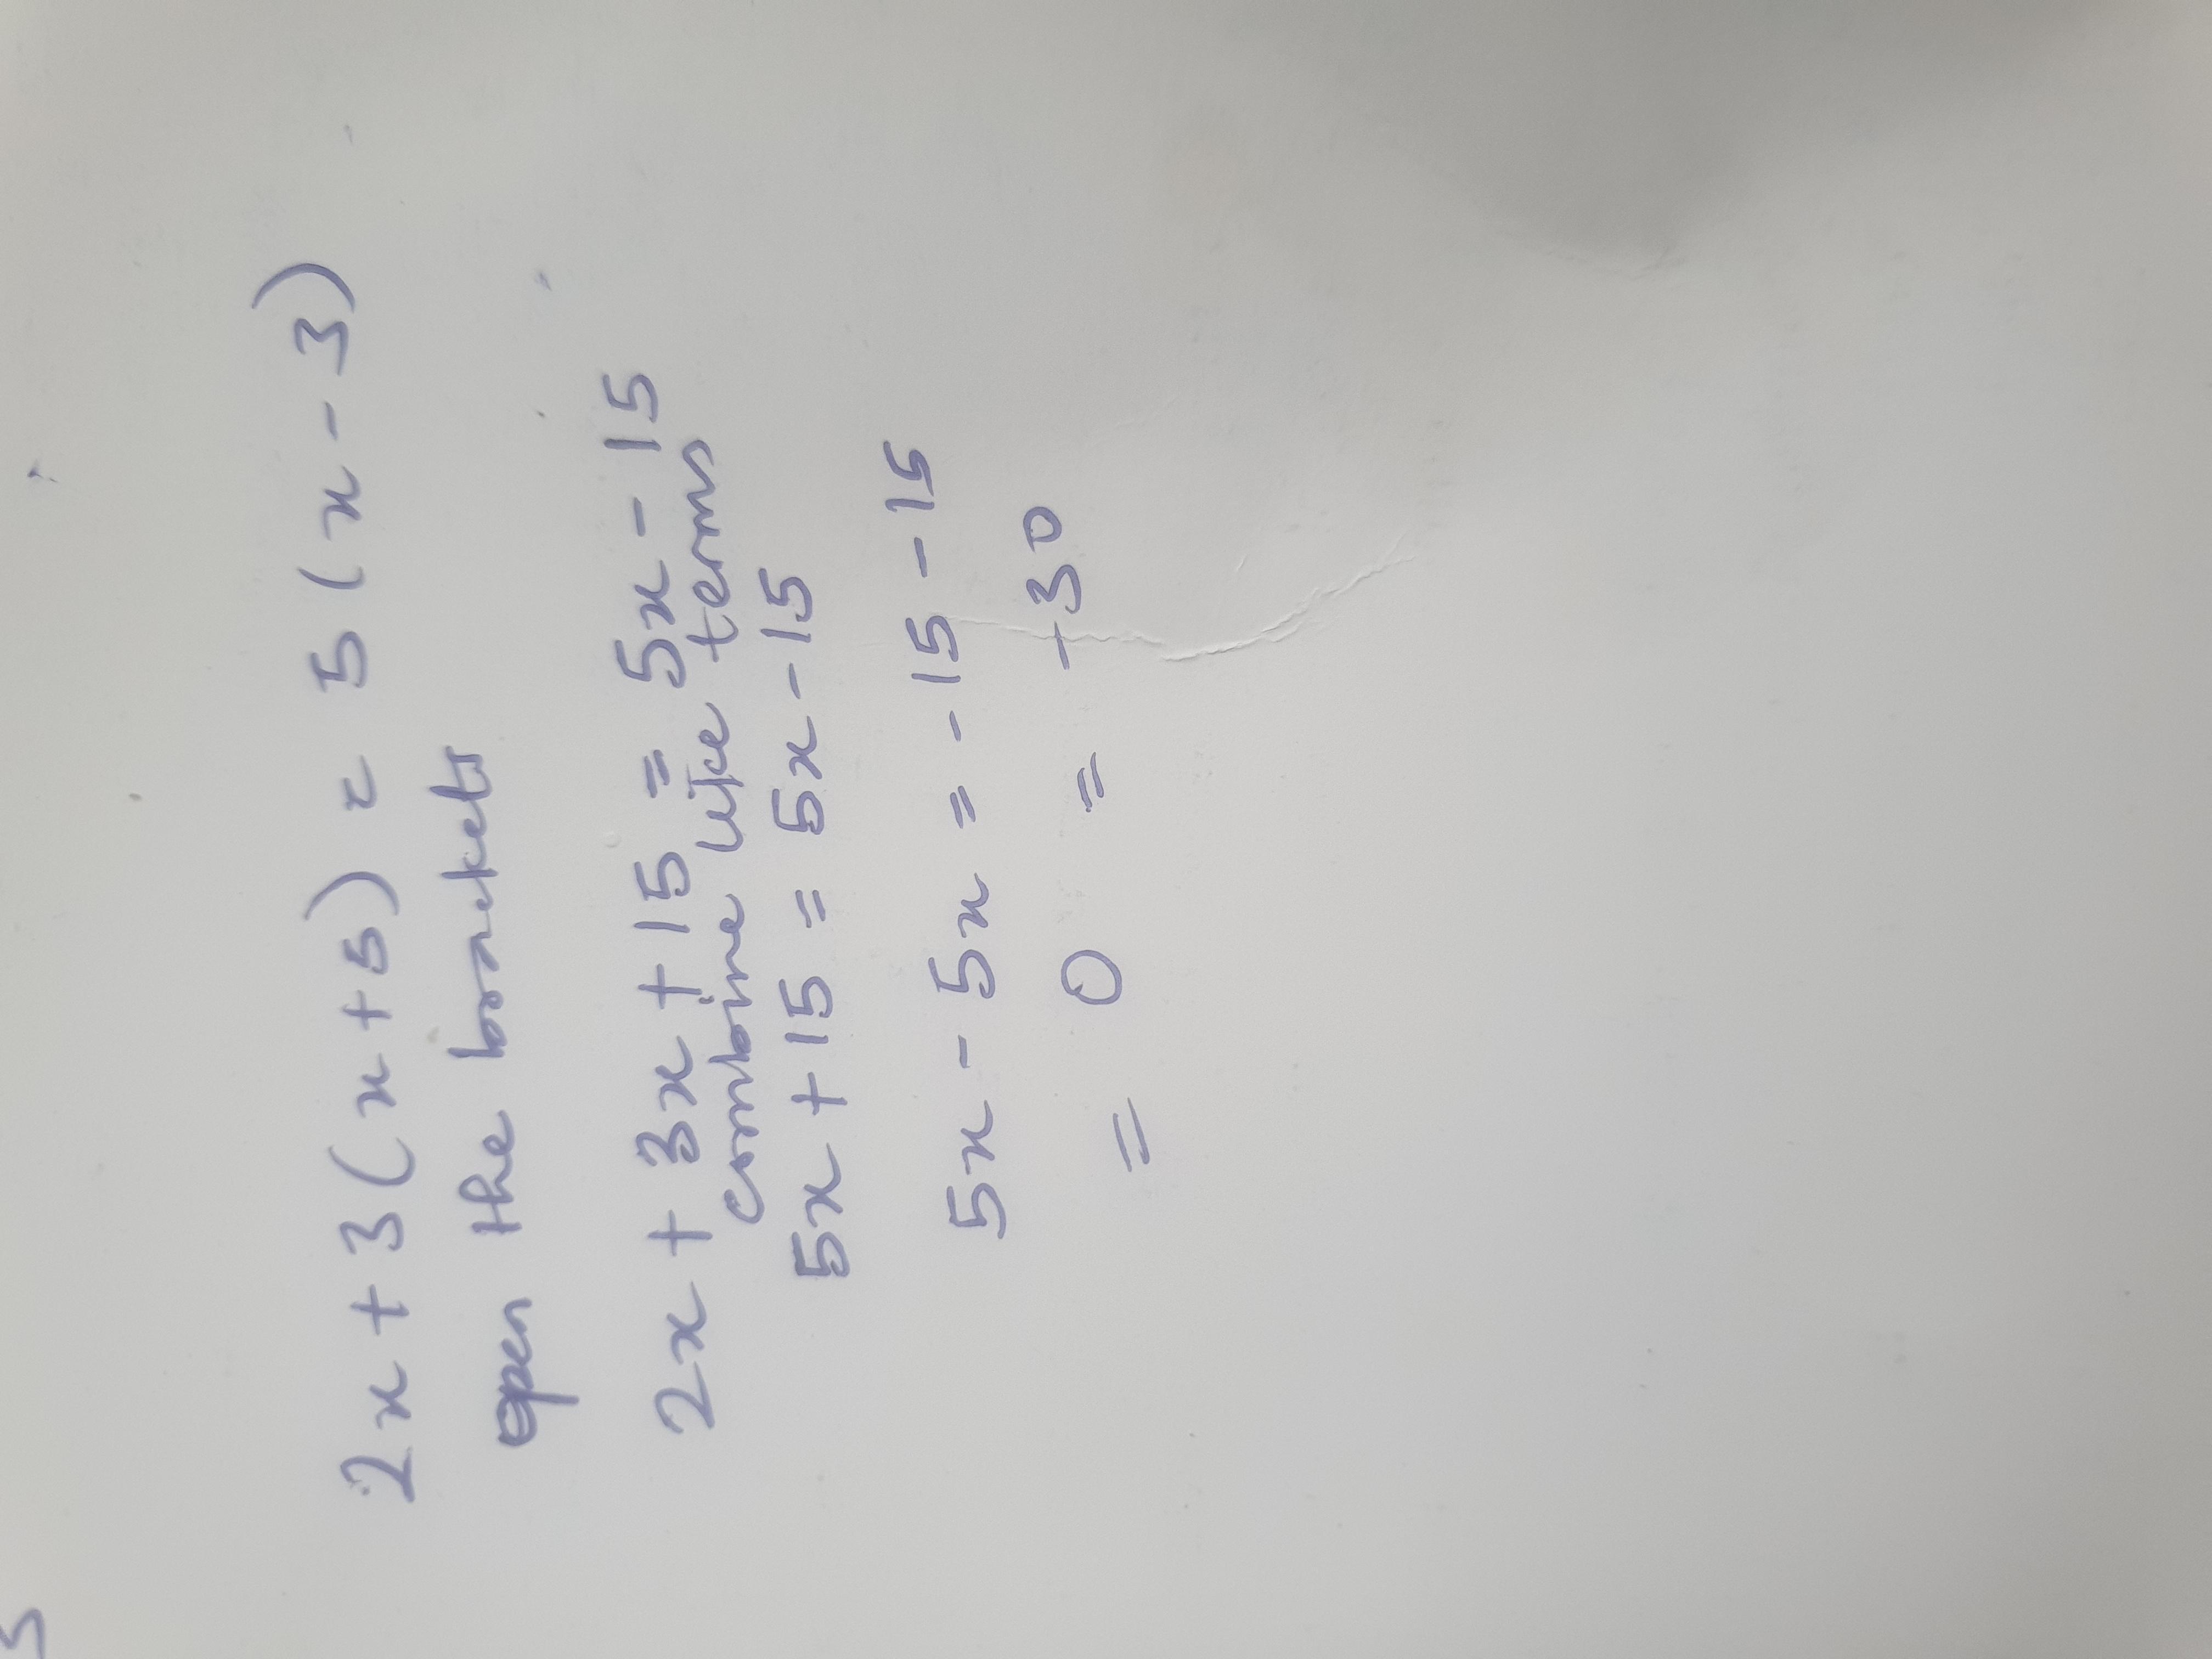 2x + 3(x + 5) = 5(x - 3)
open the brackets
2x + 3x + 15 = 5x - 15
combine like terms
5x + 15 = 5x - 15
5x - 5x = -15 - 15
= 0 = -30